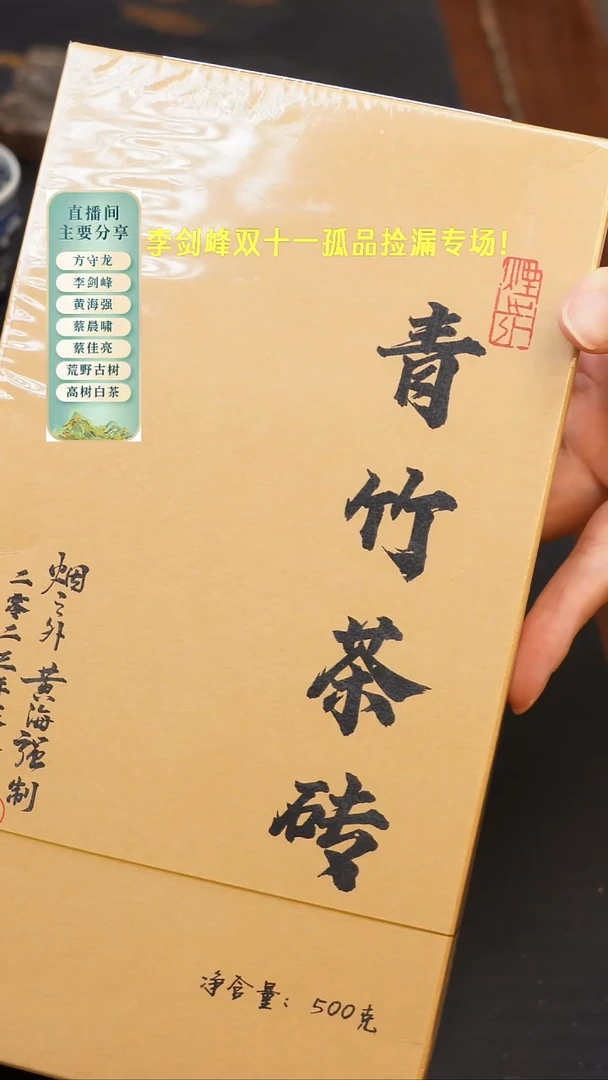 直播间
主要分享
方守龙
李剑峰
黄海强
蔡晨啸
蔡佳亮
荒野古树
高树白茶
李剑峰双十一孤品捡漏专场!
青竹茶砖
烟之外 黄海强制
二零二三年
净含量:500克